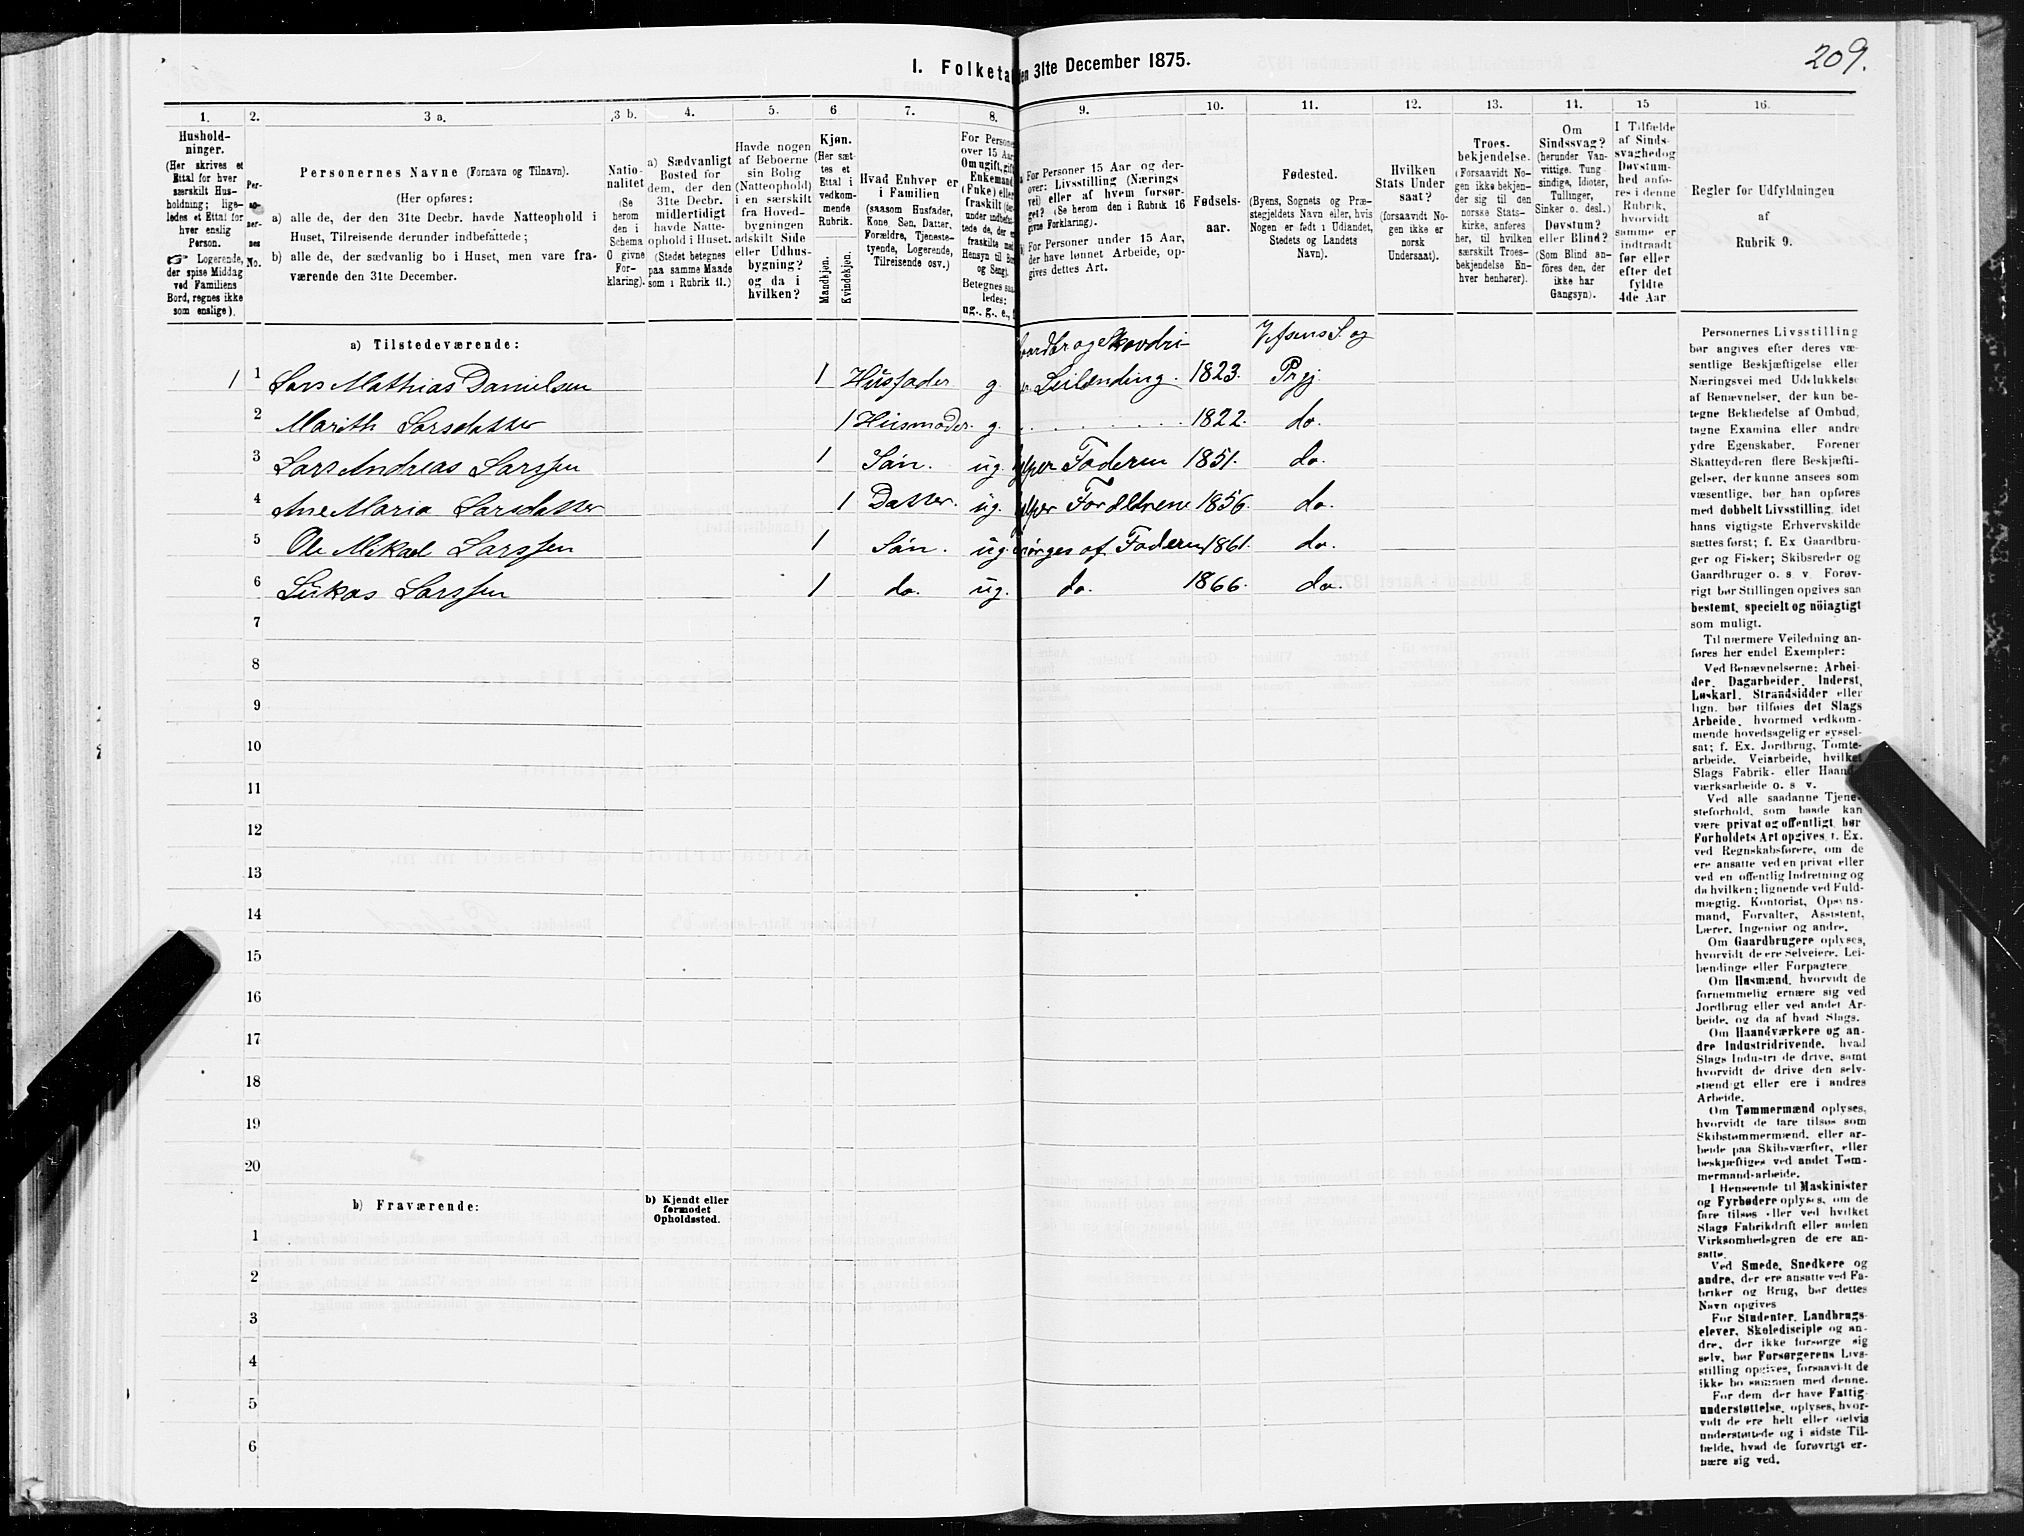 209.
I. Folketa
en 31te December 1875.
1.
2.
3 a.
3 b.
4.
5.
6
7.
8.
9.
10.
11.
12.
13.
14.
15
16.
Hushold-
ninger.
(Her skrives et
Ettal for hver
særskilt Hus-
holdning; lige-
ledes et Ettal for
hver enslig
Person.
☞ Logerende,
der spise Middag
ved Familiens
Bord, regnes ikke
som enslige).
Per-
so-
ner-
nes
No.
Personernes Navne (Fornavn og Tilnavn).
(Her opføres:
a) alle de, der den 31te Decbr. havde Natteophold i
Huset, Tilreisende derunder indbefattede;
b) alle de, der sædvanlig bo i Huset, men vare fra-
værende den 31te December.
Natio-
nalitet
(Se
herom
den i
Schema
O givne
For-
klaring).
a) Sædvanligt
Bosted for
dem, der den
31te Decbr.
midlertidigt
havde Natte-
ophold i Huset.
(Stedet betegnes
paa samme Maade
som i Rubrik 11.)
Havde nogen
af Beboerne
sin Bolig
(Natteophold)
i en særskilt
fra Hoved-
bygningen
adskilt Side
eller Udhus-
bygning?
og da i
hvilken?
Kjøn.
(Her sæt-
tes et
Ettal i
vedkom-
mende
Rubrik.
Mandkjøn.
Kvindekjøn.
Hvad Enhver er
i Familien
(saasom Husfader,
Kone, Søn, Datter,
Forældre, Tjeneste-
tyende, Logerende,
Tilreisende osv.)
For Persone
over 15 Aar
Om ugift, gift
Enkemand
(Fuke) eller
fraskilt (der-
under indbefat-
tede de, der er
fraskilte med
Hensyn til Bor
og Seng).
Betegnes saa-
ledes:
ug., g., e., f.
For Personer 15 Aar og der-
over: Livsstilling (Nærings
vei) eller af hvem forsør-
get? (Se herom den i Rubrik 16
givne Forklaring).
For Personer under 15 Aar,
der have lønnet Arbeide, op-
gives dettes Art.
Fødsels-
aar.
Fødested.
(Byens, Sognets og Præ-
stegjeldets Navn eller, hvis
Nogen er født i Udlandet,
Stedets og Landets
Navn).
Hvilken
Stats Under
saat?
(forsaavidt No-
gen ikke er
norsk
Undersaat).
Troes-
bekjendelse.
(Forsaavidt No-
gen ikke bekjen-
der sig til den
norske Stats-
kirke, anføres
her, til hvilken
særskilt Troes-
bekjendelse En-
hver henhører).
Om
Sindssvag?
(herunder Van-
vittige. Tung-
sindige, Idioter,
Tullinger,
Sinker o. desl.)
Døvstum?
eller Blind?
(Som Blind an-
føres den, der
ikke har
Gangsyn).
I Tilfælde
af Sinds-
svaghed og
Døvstum-
hed anfø-
res i denne
Rubrik,
hvorvidt
samme er
indtraadt
før eller
efter det
fyldte
4de Aar
Regler for Udfyldningen
af
Rubrik 9.
a) Tilstedeværende:
aardbr og Skovdri-
Vefsens S. og
1 1 Lars Mathias Danielsen 1 Husfader g. Leilending. 1823. Prgj.
2 Marith Larsdatter 1 Husmoder. g. 1822. do.
3 Lars Andreas Larssen 1 Søn. ug. lper Faderen 1851. do.
4 Ane Maria Larsdatter 1 Datter. ug. lper Forældrene 1856. do.
5 Ole Mikael Larssen 1 Søn. ug.ørges af Faderen 1861. do.
6 Lukas Larssen 1 do. ug. do. 1866. do.
7
8
9
10
11
12
13
14
15
16
17
18
19
20
b) Fraværende:
b) Kjendt eller
formodet
Opholdssted.
1
2
3
4
5
6
Personernes Livsstilling
bør angives efter deres væ-
sentlige Beskjæftigelse eller
Næringsvei med Udelukkelse
af Benævnelser, der kun be-
tegne Beklædelse af Ombud,
tagne Examina eller andre
ydre Egenskaber. Forener
Skatteyderen flere Beskjæfti-
gelser, der kunne ansees som
væsentlige, bør han opføres
med dobbelt Livsstilling, idet
hans vigtigste Erhvervskilde
sættes først; f. Ex Gaardbru-
ger og Fisker; Skibsreder og
Gaardbruger o. s. v. Forøv-
rigt bør Stillingen opgives saa
bestemt, specielt og nöiagtigt
som muligt.
Til nærmere Veiledning an-
føres her endel Exempler:
Ved Benævnelserne: Arbei-
der, Dagarbeider, Inderst,
Løskarl, Strandsidder eller
lign. bør tilføies det Slags
Arbeide, hvormed vedkom-
mende hovedsagelig er syssel-
sat; f. Ex. Jordbrug, Tomte-
arbeide, Veiarbeide, hvilket
Slags Fabrik- eller Haand-
værksarbeide o. s. v.
Ved alle saadanne Tjene-
steforhold, som baade kan
være privat og offentligt, bør
Forholdets Art opgives, t. Ex.
ved Regnskabsførere, om de
ere ansatte ved en privat eller
ved en offentlig Indretning og
da hvilken; lignende ved Fuld-
mægtig, Kontorist, Opsyns-
mand, Forvalter, Assistent,
Lærer, Ingeniør og andre.
Om Gaardbrugere oplyses,
hvorvidt de ere Selveiere, Lei-
lændinge eller Forpagtere.
Om Husmænd, hvorvidt de
fornemmelig ernære sig ved
Jordbrug eller ved andet Ar-
beide, og da af hvad Slags.
Om Haandværkere og an-
dre Industridrivende, hvad
Slags Industri de drive, samt
hvorvidt de drive den selv-
stændigt eller ere i andres
Arbeide.
Om Tømmermænd oplyses,
hvorvidt de fare tilsøs som
Skibstømmermænd, eller ar-
beide paa Skibsværfter, eller
beskjæftiges ved andet Tøm-
mermandsarbeide.
I Henseende til Maskinister
og Fyrbødere oplyses, om de
fare tilsøs eller ved hvilket
Slags Fabrikdrift eller anden
Virksomhedsgren de ere an-
satte.
Ved Smede, Snedkere og
andre, der ere ansatte ved Fa-
briker og Brug, bør dettes
Navn opgives
For Studenter, Landbrugs-
elever, Skoledisciple og an-
dre, der ikke forsørge sig
selv, bør Forsørgerens Livs-
stilling opgives, forsaavidt de
ikke bo sammen med denne.
For dem der have Fattig-
understøttelse, oplyses, hvor-
vidt de ere helt eller delvis
understøttede og i sidste Til-
fælde, hvad de forøvrigt er-
nære sig ved.